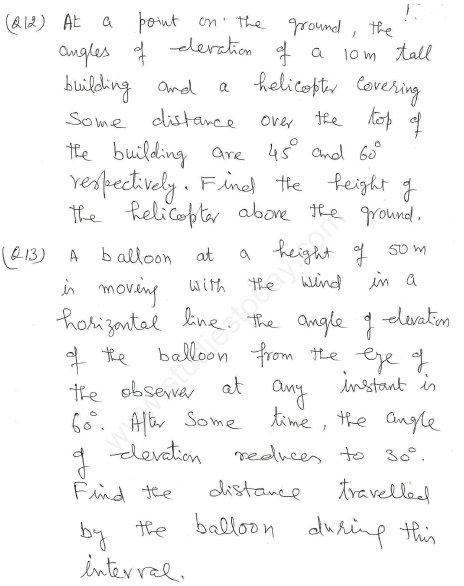 (Q12) At a point on the ground, the
angles of elevation of a 10m tall
building and a helicopter covering
some distance over the top of
the building are 45° and 60°
respectively. Find the height of
the helicopter above the ground.
(Q13) A balloon at a height of 50m
is moving with the wind in a
horizontal line. The angle of elevation
of the balloon from the eye of
the observer at any instant is
60°. After some time, the angle
of elevation reduces to 30°.
Find the distance travelled
by the balloon during this
interval.
www.studiestoday.com